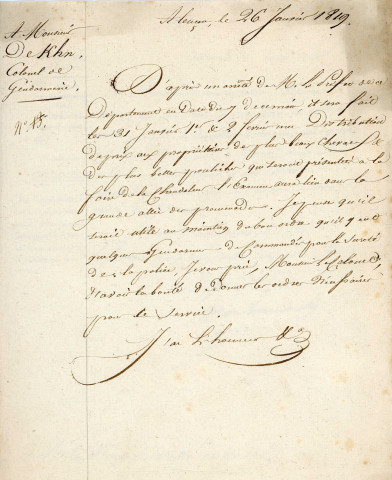 Alençon le 26 Janvier 1819.
A Monsieur
De Khn.
Colonel de
Gendarmerie.
N° 15.
D'après un arrêté de Mr le Préfet de ce
Département en date du 7 decembre, il sera fait
les 31 Janvier 1er & 2 fevrier une Distribution
de prix aux propriétaires des plus beaux chevaux &
des plus belles poulinières qui seront présentés à la
foire de la Chandeleur. l'Examen aura lieu dans la
grande allée des promenades. Je pense qu'il
serait utile au maintien du bon ordre qu'il y eut
quelques Gendarmes de Commandés pour la sureté
de la police, Je vous prie, Monsieur le Colonel,
d'avoir la bonté de donner les ordres nécessaires
pour ce service.
J'ai l'honneur &a